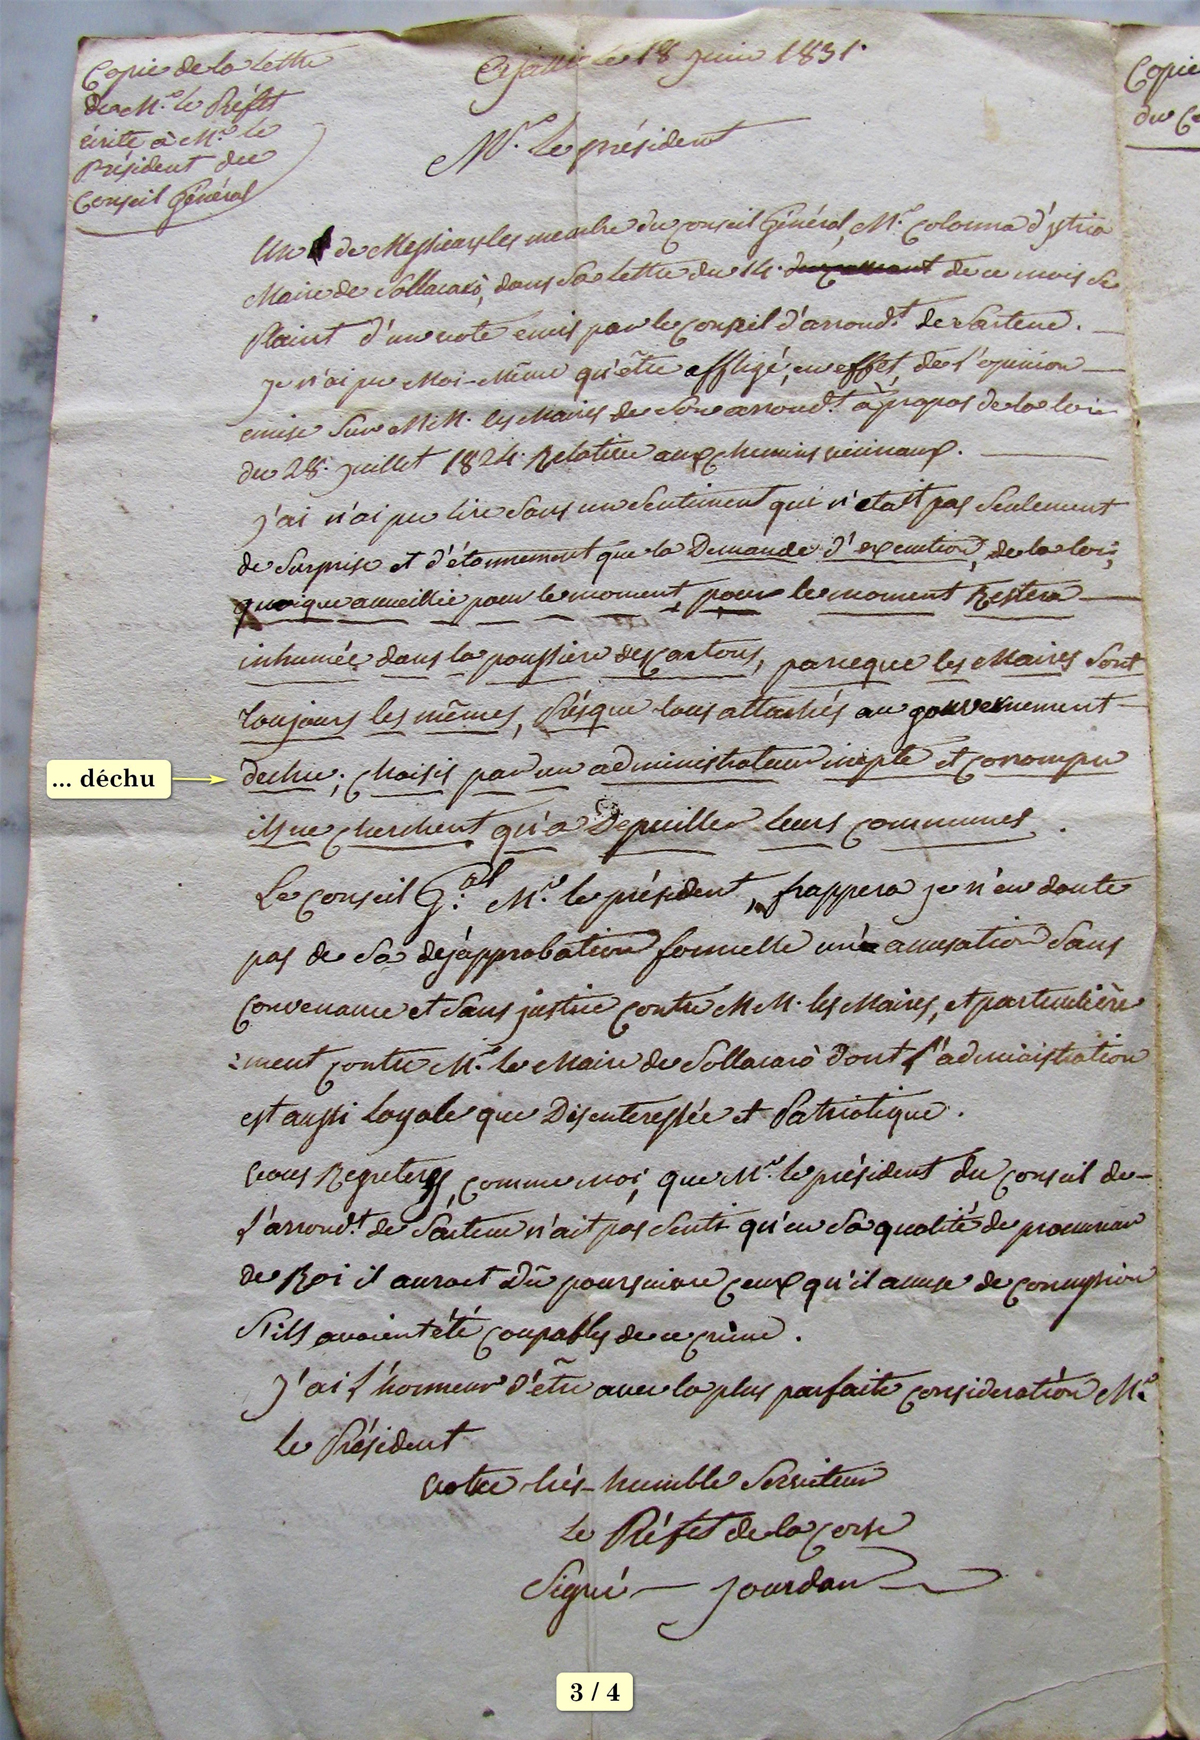 Copie de la lettre
de M.r le Préfet
écrite à M.r le
Président du
Conseil Général
Ajaccio le 18 juin 1831.
M.r le président
Un de Messieurs les membre du conseil Général, M.r Colonna d'istria
Maire de Sollacarò, dans sa lettre du 14. de ce mois se
Plaint d'un vote émis par le conseil d'arrond.t de Sartene.
je n'ai pu Moi-Même qu'être affligé, en effet, de l'opinion
emise sur M.M. les Maires de son arrond.t à propos de la loi
du 28. juillet 1824. Relative aux chemins vicinaux.
j'ai n'ai pu lire sans un sentiment qui n'etait pas seulement
de surprise et d'étonnement que la Demande d'execution, de la loi,
quoique accueillie pour le moment, pour le moment Restera
inhumée dans la poussière des cartons, parceque les Maires sont
toujours les mêmes, Présque tous attachés au gouvernement
dechu; choisis par un administrateur inepte et corrompu
ils ne cherchent qu'a Depouiller leurs communes.
... déchu
Le conseil G.al M.r le président, frappera je n'en doute
pas de sa désapprobation formelle une accusation sans
convenance et sans justice contre M M. les Maires, et particulière
=ment contre M.r le Maire de Sollacarò dont l'administration
est aussi loyale que Disenteressée et Patriotique.
vous Regreterez, comme moi, que M.r le président du conseil de
l'arrond.t de Sartene n'ait pas senti qu'en sa qualité de procureur
de Roi il auroit Dû poursuivre ceux qu'il accuse de concussion
s'ils avoient été coupables de ce crime.
J'ai l'honneur d'être avec la plus parfaite consideration M.r
le Président
votre très-humble serviteur
Le Préfet de la corse
Signé — Jourdan
3 / 4
Copie
du Co